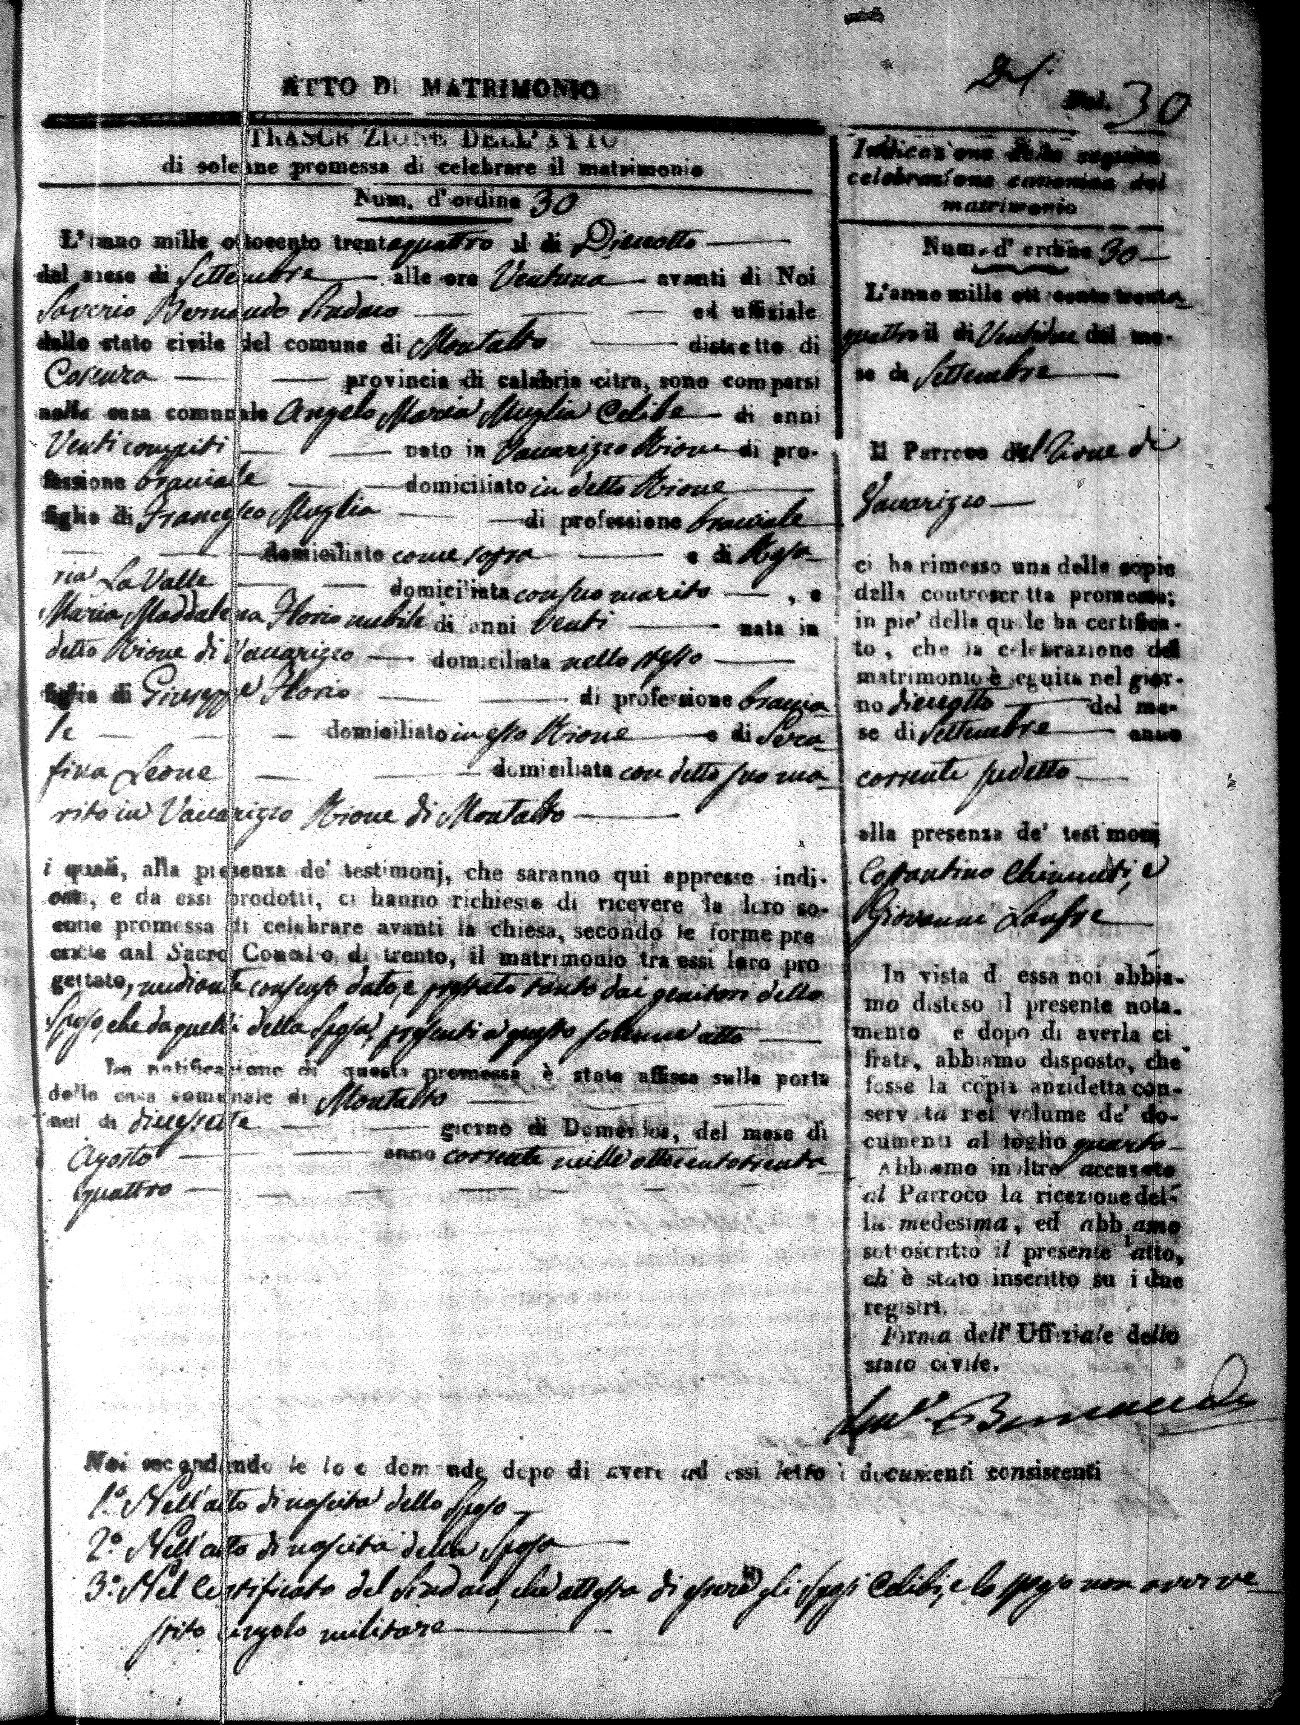 ATTO DI MATRIMONIO
30
TRASCRIZIONE DELL'ATTO
di solenne promessa di celebrare il matrimonio
Num. d'ordine 30
L'anno mille ottocento trentaquattro il di Dieciotto
del mese di Settembre alle ore Ventuna avanti di Noi
Saverio Bernaudo Sindaco ed uffiziale
dello stato civile del comune di Montalto distretto di
Cosenza provincia di calabria citra, sono comparsi
nella casa comunale Angelo Maria Muglia Celibe di anni
Venti compiti nato in Vaccarizzo Rione di pro-
fessione bracciale domiciliato in detto Rione
figlio di Francesco Muglia di professione bracciale
domiciliato come sopra e di Rosa
ria La Valle domiciliata con suo marito , e
Maria Maddalena Florio nubile di anni Venti nata in
detto Rione di Vaccarizzo domiciliata nello stesso
figlia di Giuseppe Florio di professione braccia
le domiciliato in esso Rione e di Sera
fina Leone domiciliata con detto suo ma
rito in Vaccarizzo Rione di Montalto
i quali, alla presenza de' testimonj, che saranno qui appresse indi-
cati, e da essi prodotti, ci hanno richiesto di ricevere la loro so-
enne promessa di celebrare avanti la chiesa, secondo le forme pre
critte dal Sacro Concilio di trento, il matrimonio tra essi loro pro
gettato, mediante consenso dato, e prestato tanto dai genitori dello
Sposo, che da quelli della Sposa, presenti a questo solenne atto
La notificazione di questa promessa è stata affissa sulla porta
della casa comunale di Montalto
nel di diciessette giorno di Domenica, del mese di
Agosto anno corrente mille ottocentotrenta
quattro
Indicazione della seguita
celebrazione canonica del
matrimonio
Num. d'ordine 30
L'anno mille ottocento trenta
quattro il di Ventidue del me-
se di Settembre
Il Parroco del Rione di
Vaccarizzo
ci ha rimesso una delle copie
della controscritta promessa;
in pie' della quale ha certifica-
to, che la celebrazione del
matrimonio è seguita nel gior-
no dieciotto del me-
se di Settembre anno
corrente sudetto
alla presenza de' testimonj
Costantino Chimenti, e
Giovanni
In vista d essa noi abbia-
mo disteso il presente nota-
mento e dopo di averla ci
frata, abbiamo disposto, che
fosse la copia anzidetta con-
servata nel volume de' do-
cumenti al foglio quarto
Abbiamo inoltre accusato
al Parroco la ricezione del-
la medesima, ed abbiamo
sottoscritto il presente atto,
ch' è stato inscritto su i due
registri.
Firma dell' Uffiziale dello
stato civile.
Bernaudo
Noi secondando le loro domande dopo di avere ad essi letto i documenti consistenti
1.º Nell'atto di nascita dello Sposo
2.º Nell'atto di nascita della Sposa
3.º Nel Certificato del Sindaco, che attesta di essere gli Sposi Celibi, e lo sposo non aver ve
stito cingolo militare